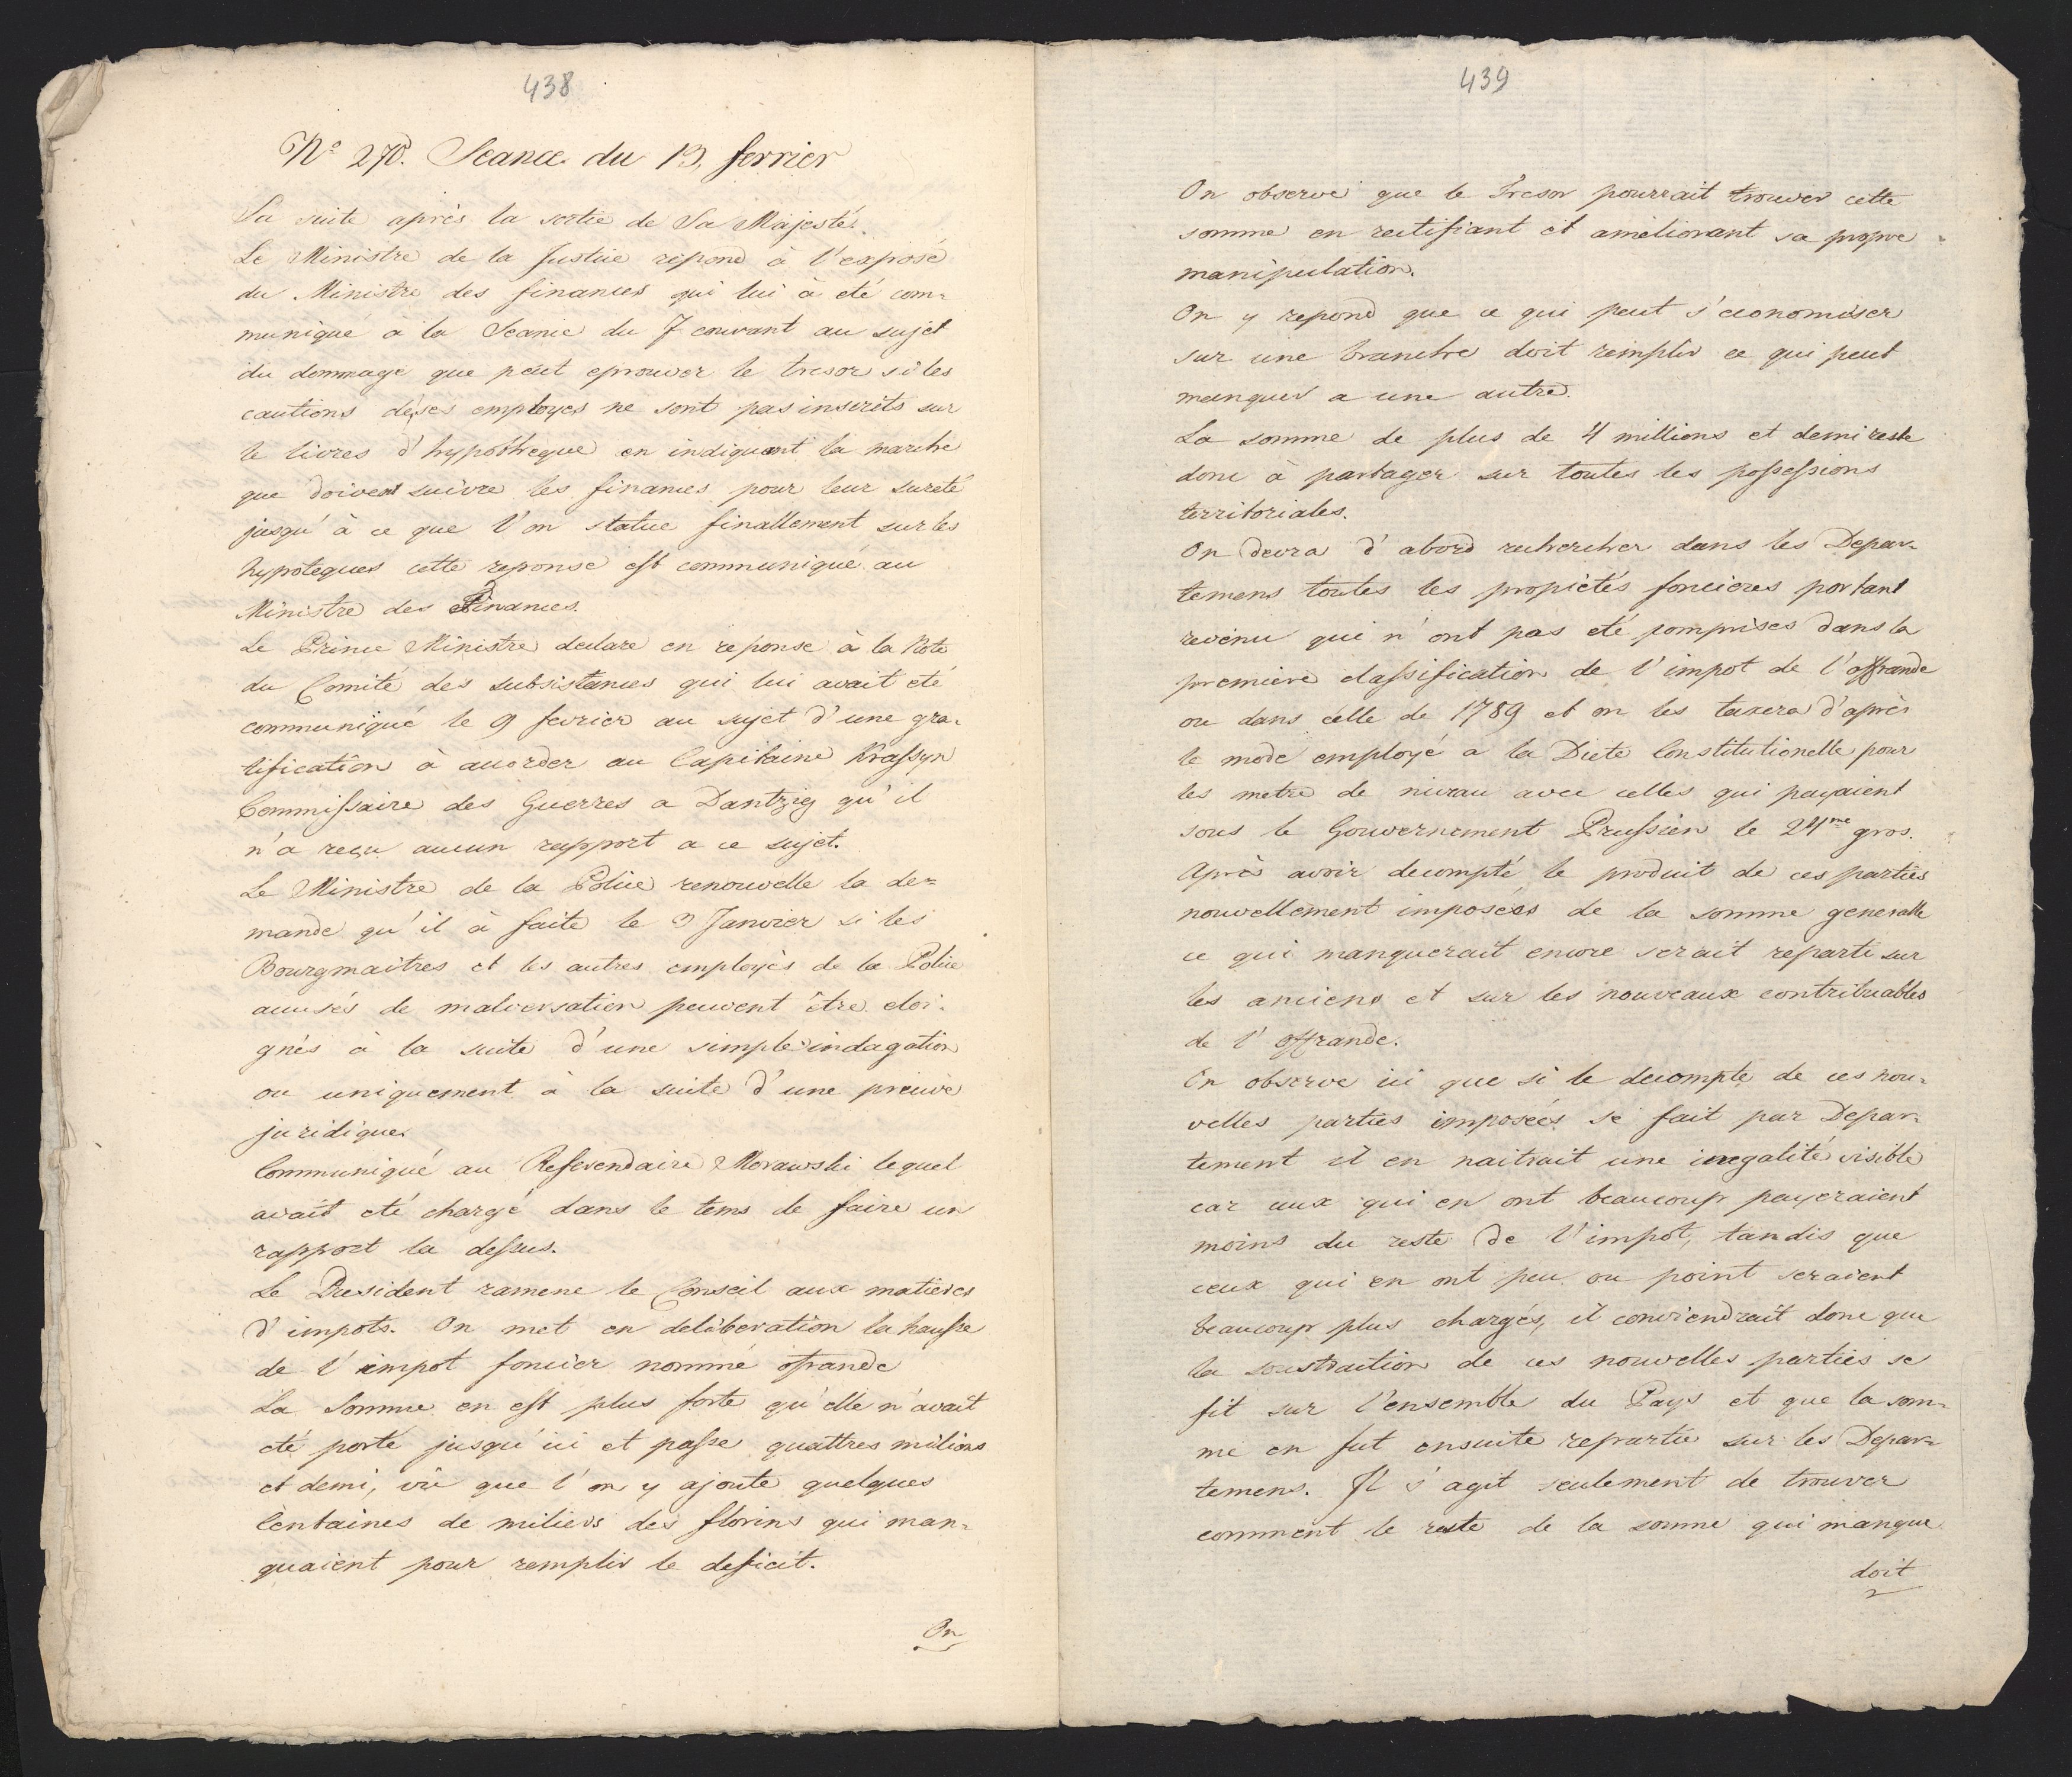 438
Nº 270. Seance du 13, fevrier
La suite après la sortie de Sa Majesté.
Le Ministre de la Justice répond à l'exposé
du Ministre des finances qui lui à eté com=
munique à la Seance du 7 courant au sujet
du dommage que peut eprouver le tresor si les
cautions de ses employes ne sont pas inscrits sur
le livres d'hypotheque en indiquant la marche
que doivent suivre les finances pour leur sureté
jusqu'à ce que l'on statue finallement sur les
hypoteques cette reponse est communiqué au
Ministre des Finances.
Le Prince Ministre declare en reponse à la Note
du Comité des subsistances qui lui avait eté
communiqué le 9 fevrier au sujet d'une gra=
tification à accorder au Capitaine Krassyn
Commissaire des Guerres a Dantzig qu'il
n'a reçu aucun rapport a ce sujet.
Le Ministre de la Police renouvelle la de=
mande qu'il à faite le 3 Janvier si les
Bourgmaitres et les autres employés de la Police
accusés de malversation peuvent être eloi=
gnés à la suite d'une simple indagation
ou uniquement à la suite d'une preuve
juridique.
Communiqué au Referendaire Morawski lequel
avait eté chargé dans le tems de faire un
rapport la dessus.
Le President ramene le Conseil aux matieres
d'impots. On met en deliberation la hausse
de l'impot foncier nommé ofrande
La Somme en est plus forte qu'elle n'avait
eté porté jusqu'ici et passe quattres milions
et demi, vû que l'on y ajoute quelques
Centaines de miliers des florins qui man=
quaient pour remplir le deficit.
On
439
On observe que le Tresor pourrait trouver cette
somme en rectifiant et améliorant sa propre
manipulation.
On y repond que ce qui peut s'economiser
sur une branche doit remplir ce qui peut
manquer a une autre.
La somme de plus de 4 millions et demi reste
donc à partager sur toutes les possessions
territoriales.
On devra d'abord rechercher dans les Depar=
temens toutes les propietés foncieres portant
revenu qui n'ont pas eté comprises dans la
premiere classification de l'impot de l'offrande
ou dans celle de 1789 et on les taxera d'après
le mode employé a la Diete Constitutionelle pour
les metre de niveau avec celles qui payaient
sous le Gouvernement Prussien le 24me gros.
Après avoir decompté le produit de ces parties
nouvellement imposées de la somme generalle
ce qui manquerait encore serait reparti sur
les anciens et sur les nouveaux contribuables
de l'offrande.
On observe ici que si le decompte de ces nou=
velles parties imposées se fait par Depar=
tement il en naitrait une inegalité visible
car ceux qui en ont beaucoup payeraient
moins du reste de l'impot, tandis que
ceux qui en ont peu ou point seraient
beaucoup plus chargés, il conviendrait donc que
la soustraction de ces nouvelles parties se
fit sur l'ensemble du Pays et que la som=
me en fut ensuite repartie sur les Depar=
temens. Il s'agit seulement de trouver
comment le reste de la somme qui manque
doit